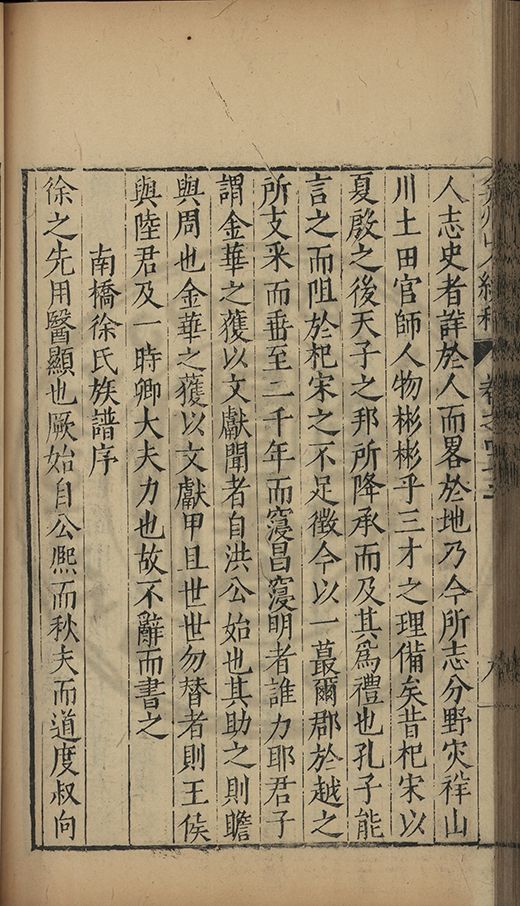 弇州山人續稿 卷之四十三
人志史者詳於人而畧於地乃今所志分野灾祥山
川土田官師人物彬彬乎三才之理備矣昔杞宋以
夏殷之後天子之邦所降承而及其爲禮也孔子能
言之而阻於杞宋之不足徵今以一蕞爾郡於越之
所支釆而埀至二千年而寖昌寖明者誰力耶君子
謂金華之獲以文獻聞者自洪公始也其助之則瞻
與周也金華之獲以文獻甲且世世勿替者則王侯
與陸君及一時卿大夫力也故不辭而書之
南橋徐氏族譜序
徐之先用醫顯也厥始自公熈而秋夫而道度叔向